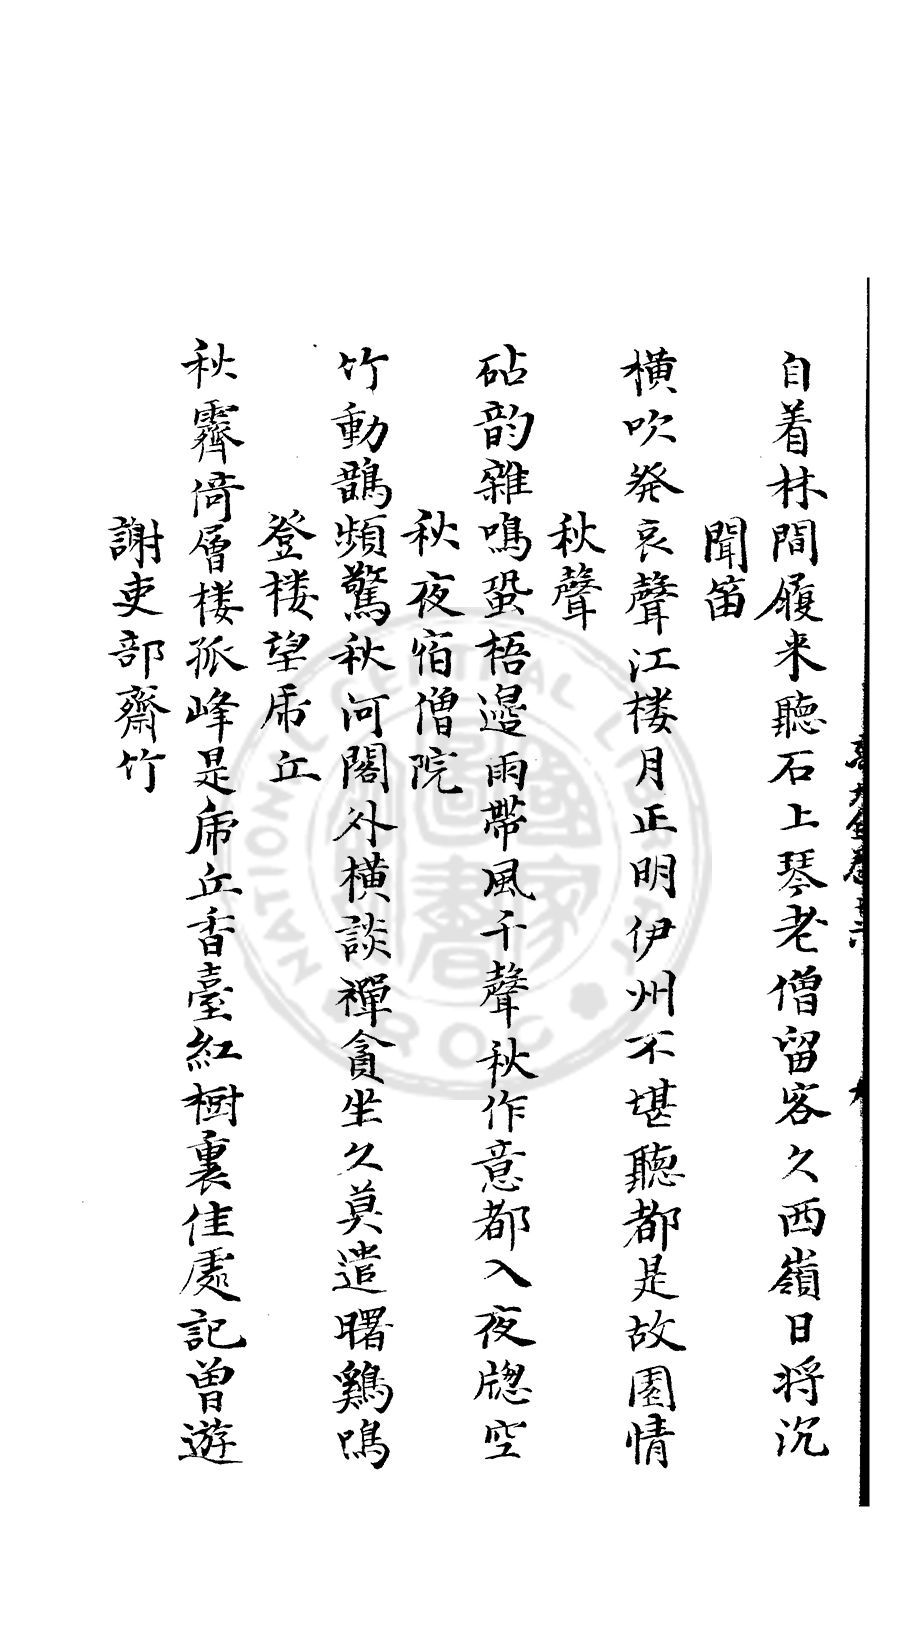 自着林間履来聽石上琴老僧留客久西嶺日将沉
聞笛
橫吹発哀聲江楼月正明伊州不堪聽都是故園情
秋聲
砧韵雜鳴蛩梧邊雨帶風千聲秋作意都入夜牕空
秋夜宿僧院
竹動鵲頻驚秋河閣外橫談禪貪坐久莫遣曙鷄鳴
登楼望虎丘
秋霽倚層楼孤峰是虎丘香臺紅樹裏佳處記曽遊
謝吏部齋竹
NATIONAL CENTRAL LIBRARY
ROC
國家
圖書